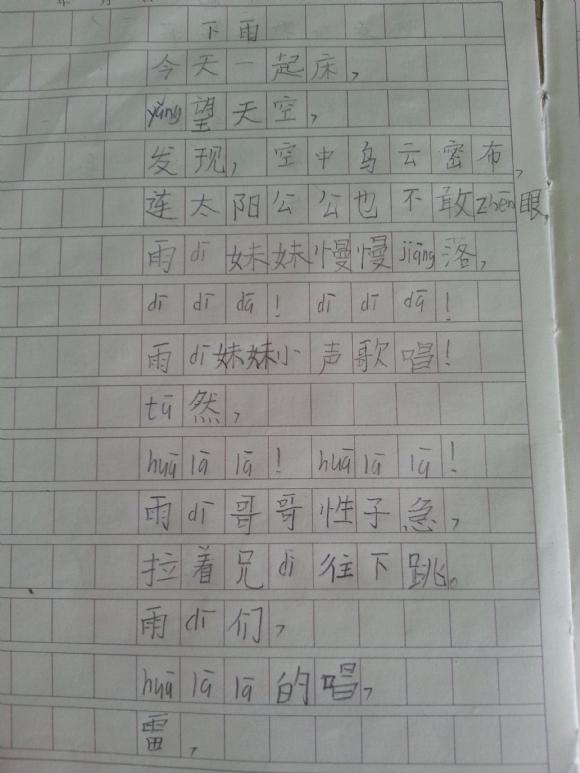 下雨
今天一起床，
yǎng望天空，
发现，空中乌云密布，
连太阳公公也不敢zhēn眼，
雨dī妹妹慢慢jiāng落，
dī dī dā！dī dī dā！
雨dī妹妹小声歌唱！
tū然，
huā lā lā！huā lā lā！
雨dī哥哥性子急，
拉着兄dì往下跳。
雨dī们，
huā lā lā的唱，
雷，